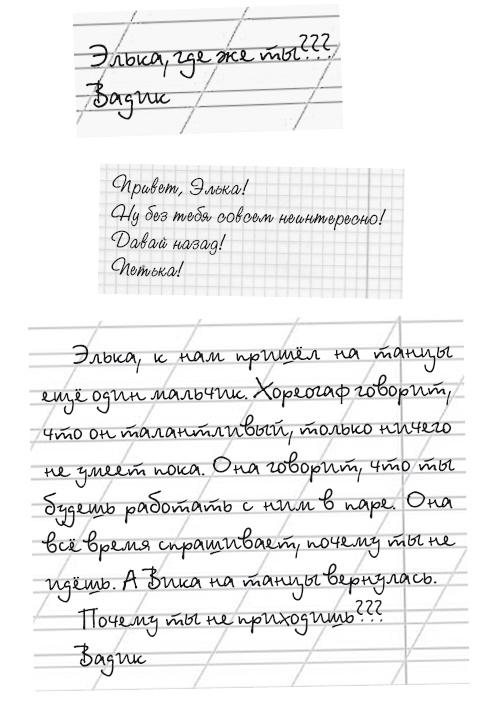 Элька, где же ты???
Вадик
Привет, Элька!
Ну без тебя совсем неинтересно!
Давай назад!
Петька!
Элька, к нам пришёл на танцы
ещё один мальчик. Хореогаф говорит,
что он талантливый, только ничего
не умеет пока. Она говорит, что ты
будешь работать с ним в паре. Она
всё время спрашивает, почему ты не
идёшь. А Вика на танцы вернулась.
Почему ты не приходишь???
Вадик